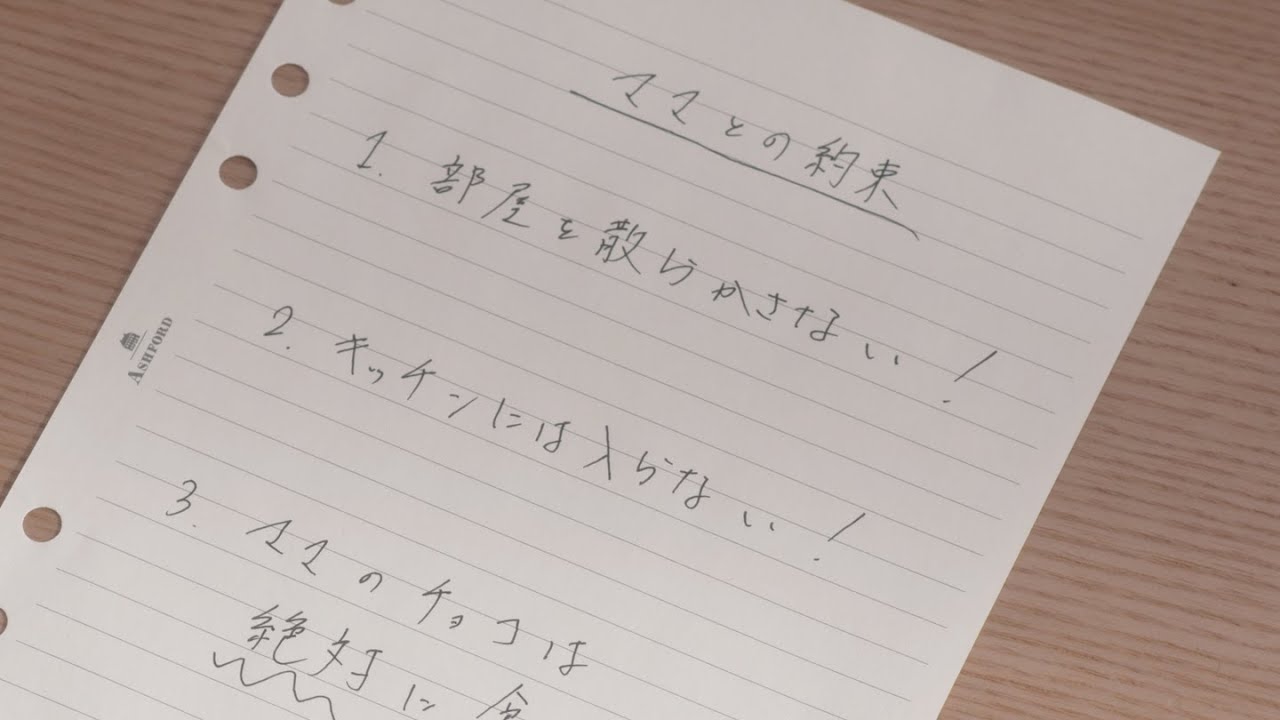 ママとの約束
1. 部屋を散らかさない!
2. キッチンには入らない!
3. ママのチョコは
絶対に
ASHFORD